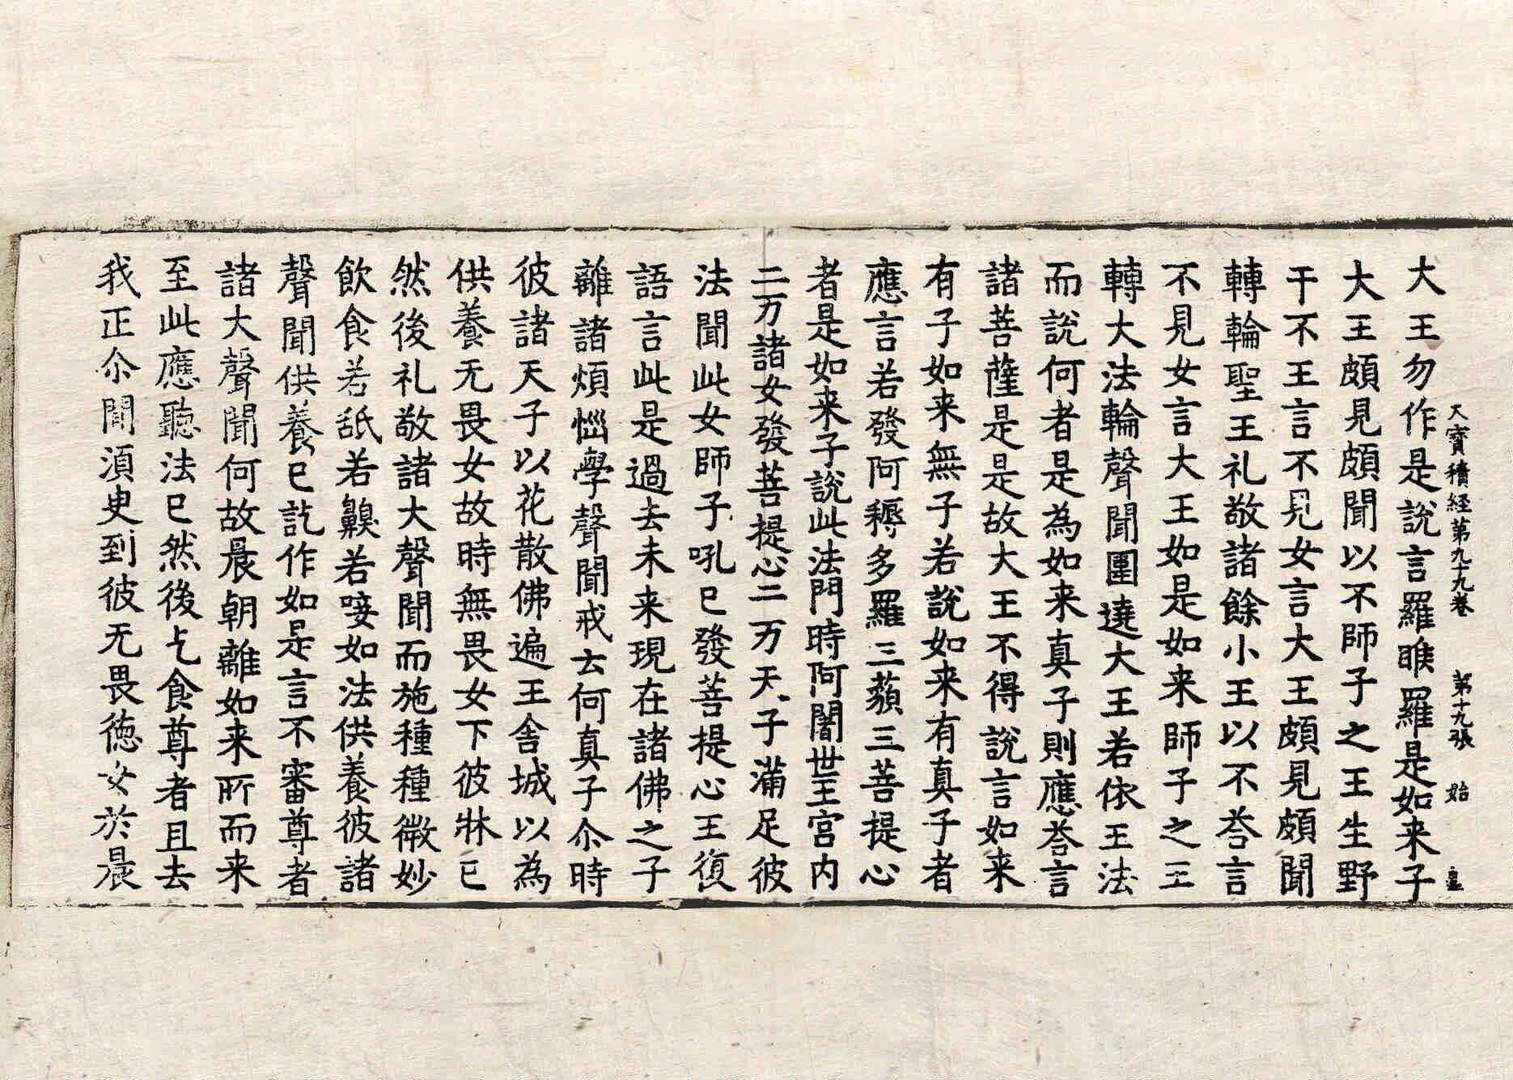 大寶積経苐九十九卷 苐十九張 始
大王勿作是說言羅睺羅是如来子
大王頗見頗聞以不師子之王生野
干不王言不見女言大王頗見頗聞
轉輪聖王礼敬諸餘小王以不荅言
不見女言大王如是如来師子之王
轉大法輪聲聞圍遶大王若依王法
而說何者是為如来真子則應荅言
諸菩薩是是故大王不得說言如来
有子如来無子若說如来有真子者
應言若發阿耨多羅三藐三菩提心
者是如来子說此法門時阿闍世王宫内
二万諸女發菩提心二万天子滿足彼
法聞此女師子吼已發菩提心王復
語言此是過去未来現在諸佛之子
離諸煩惱學聲聞戒去何真子尒時
彼諸天子以花散佛遍王舍城以為
供養无畏女故時無畏女下彼牀已
然後礼敬諸大聲聞而施種種微妙
飲食若舐若齅若唼如法供養彼諸
聲聞供養已訖作如是言不審尊者
諸大聲聞何故晨朝離如来所而来
至此應聽法已然後乞食尊者且去
我正尒聞湏臾到彼无畏德女於晨